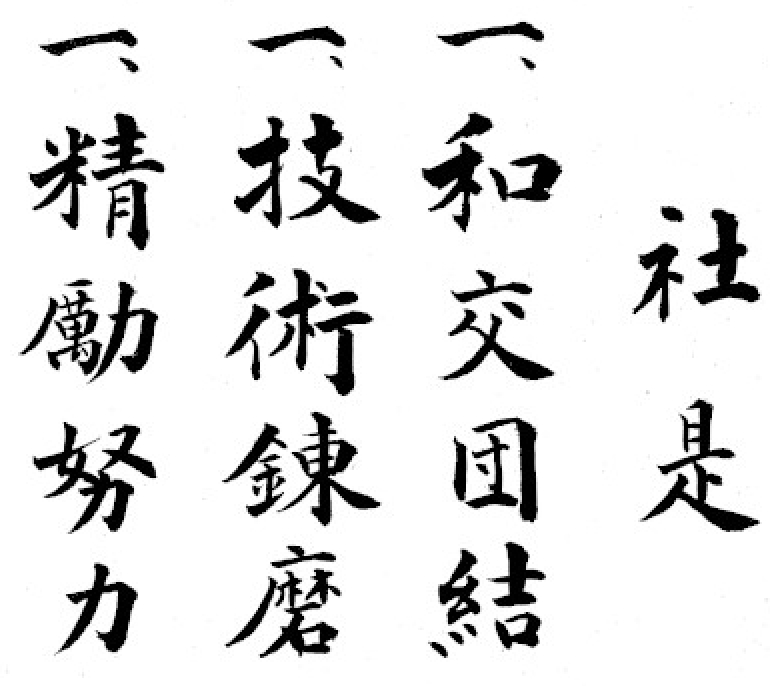 社是
一、和交団結
一、技術錬磨
一、精励努力